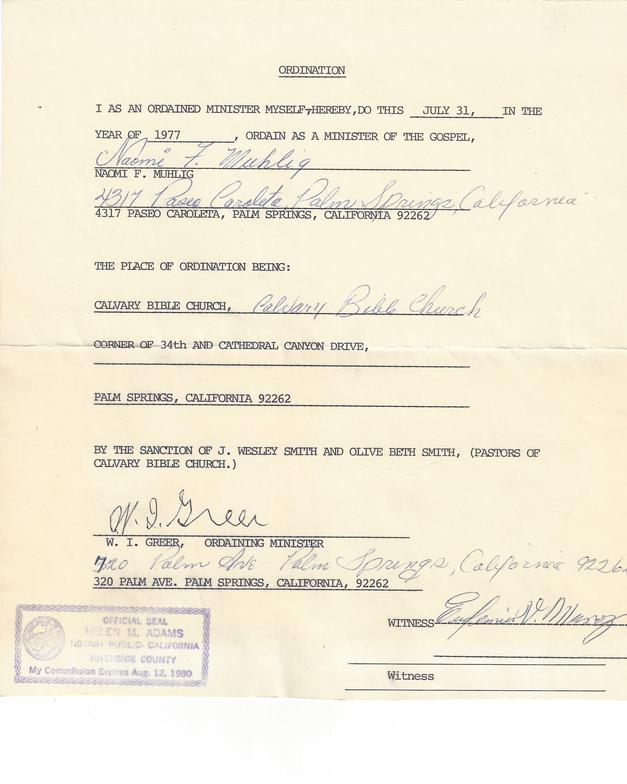 ORDINATION
I AS AN ORDAINED MINISTER MYSELF,HEREBY,DO THIS JULY 31, IN THE
YEAR OF 1977 , ORDAIN AS A MINISTER OF THE GOSPEL,
Naomi F. Muhlig
NAOMI F. MUHLIG
4317 Paseo Caroleta, Palm Springs, California
4317 PASEO CAROLETA, PALM SPRINGS, CALIFORNIA 92262
THE PLACE OF ORDINATION BEING:
CALVARY BIBLE CHURCH, Calvary Bible Church
CORNER OF 34th AND CATHEDRAL CANYON DRIVE,
PALM SPRINGS, CALIFORNIA 92262
BY THE SANCTION OF J. WESLEY SMITH AND OLIVE BETH SMITH, (PASTORS OF
CALVARY BIBLE CHURCH.)
W. I. Greer
W. I. GREER, ORDAINING MINISTER
720 Palm Ave. Palm Springs, California 9226
320 PALM AVE. PALM SPRINGS, CALIFORNIA, 92262
WITNESS V. Munoz
OFFICIAL SEAL
HELEN M. ADAMS
NOTARY PUBLIC-CALIFORNIA
RIVERSIDE COUNTY
My Commission Expires Aug. 12, 1980
Witness